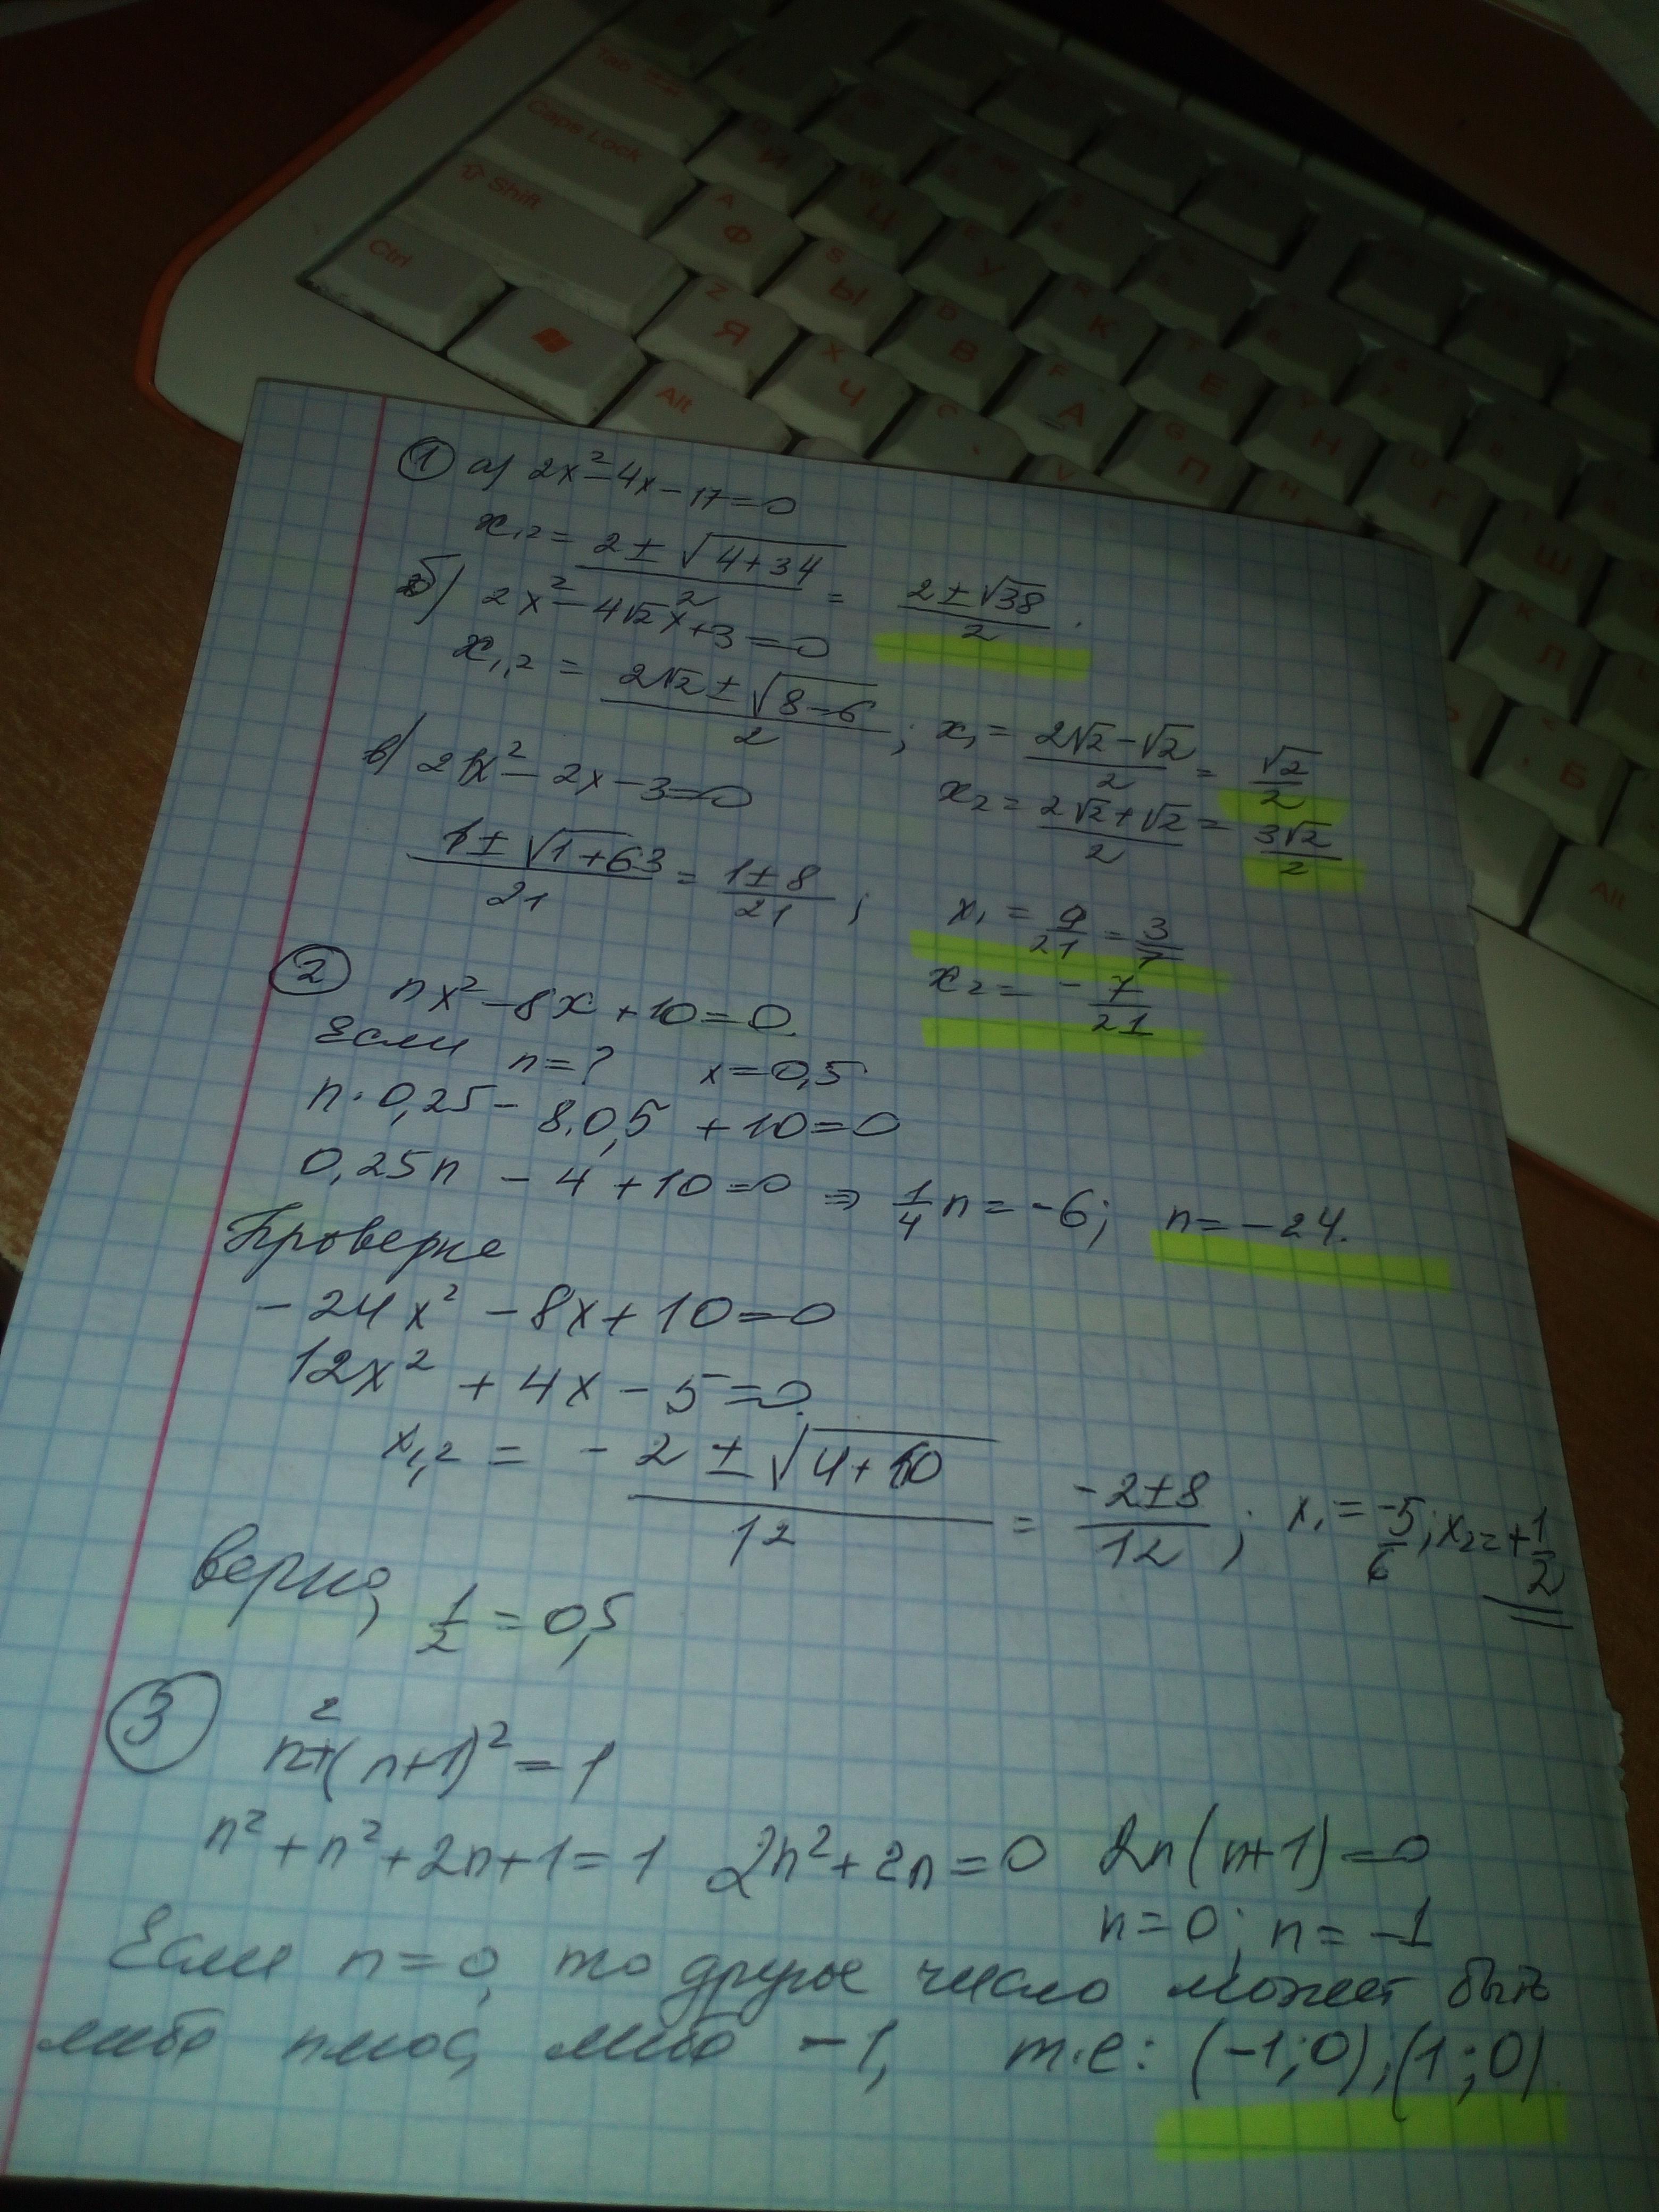 Tab
Caps Lock
Shift
Ctrl
Alt
Alt
① а) 2x² − 4x − 17 = 0
x₁,₂ = (2 ± √(4+34))/2 = (2 ± √38)/2.
б) 2x² − 4√2x + 3 = 0
x₁,₂ = (2√2 ± √(8−6))/2 ; x₁ = (2√2 − √2)/2 = √2/2
x₂ = (2√2 + √2)/2 = 3√2/2
в) 21x² − 2x − 3 = 0
(1 ± √(1+63))/21 = (1 ± 8)/21 ; x₁ = 9/21 = 3/7
x₂ = − 7/21
② nx² − 8x + 10 = 0.
Если n = ? x = 0,5
n · 0,25 − 8·0,5 + 10 = 0
0,25n − 4 + 10 = 0 ⇒ 1/4 n = −6; n = −24.
Проверка
− 24x² − 8x + 10 = 0
12x² + 4x − 5 = 0.
x₁,₂ = (−2 ± √(4+60))/12 = (−2 ± 8)/12 ; x₁ = −5/6; x₂ = +1/2
верно, 1/2 = 0,5
③ n² + (n+1)² = 1
n² + n² + 2n + 1 = 1 2n² + 2n = 0 2n(n+1) = 0
n = 0; n = −1
Если n = 0, то другое число может быть
либо плюс, либо −1, т.е: (−1; 0); (1; 0)